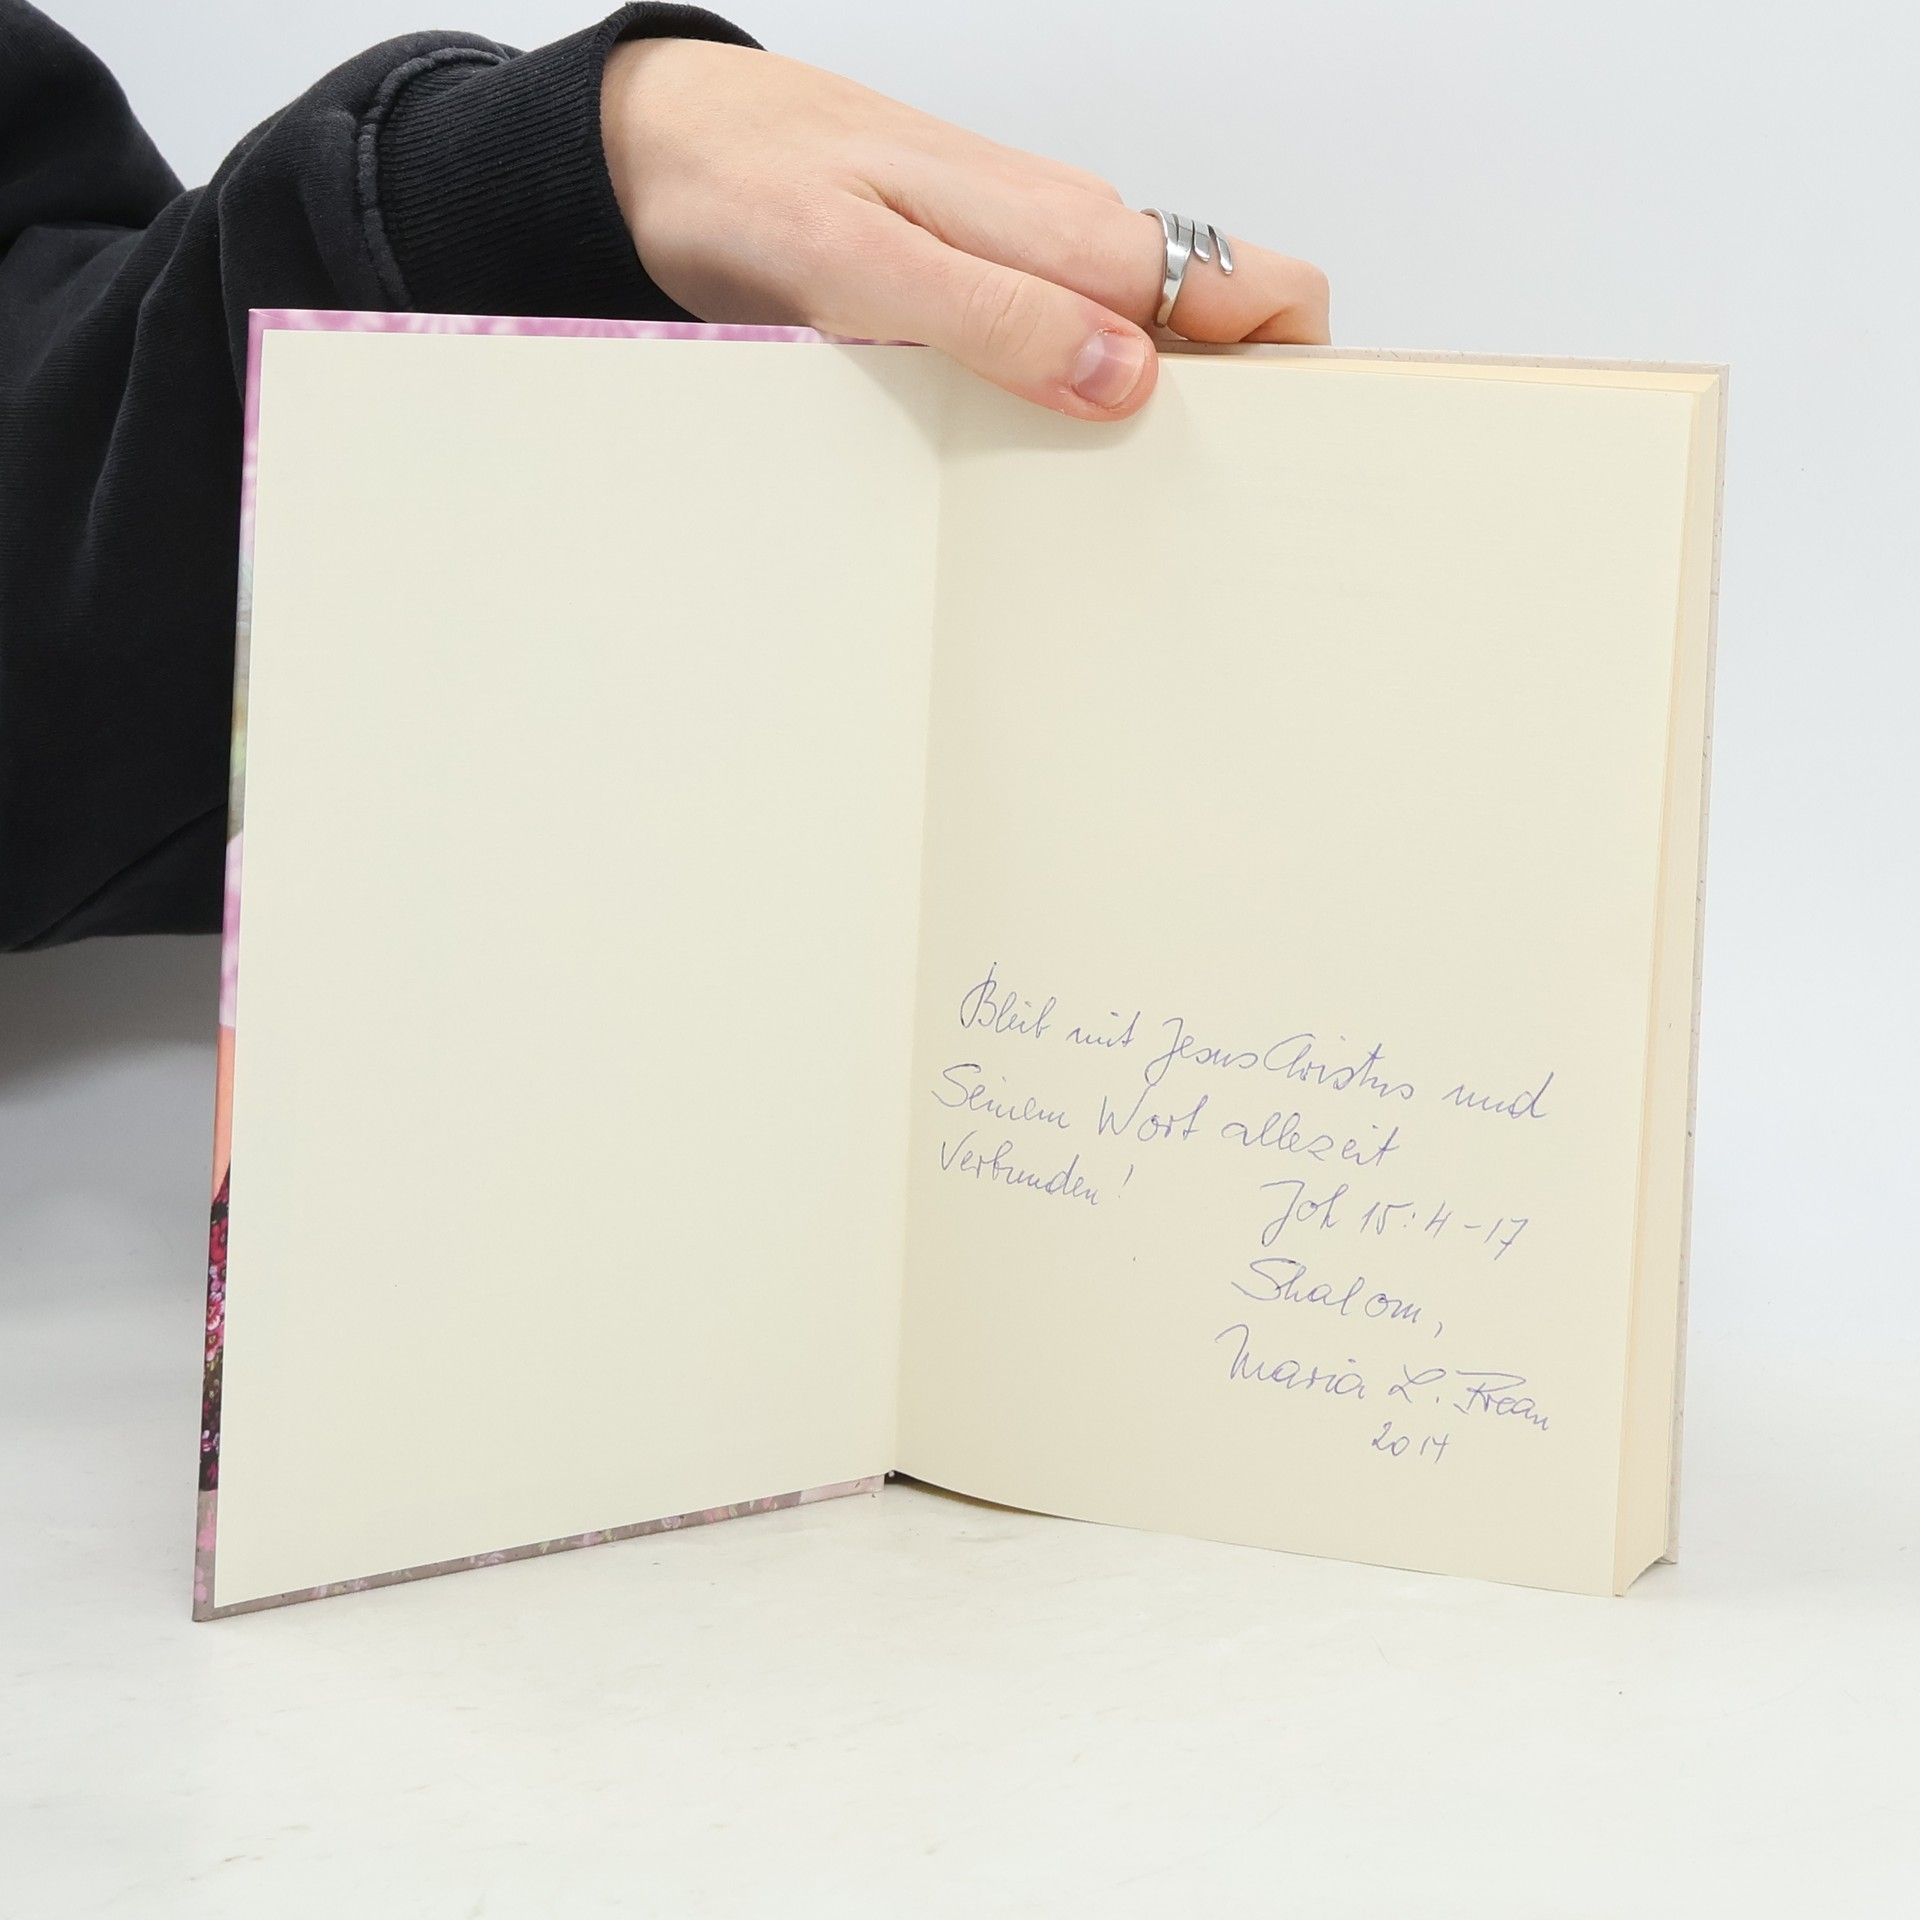 Bleib mit Jesus Christus und
Seinem Wort allezeit
Verbunden!
Joh 15:4-17
Shalom,
Maria L. Prean
2014